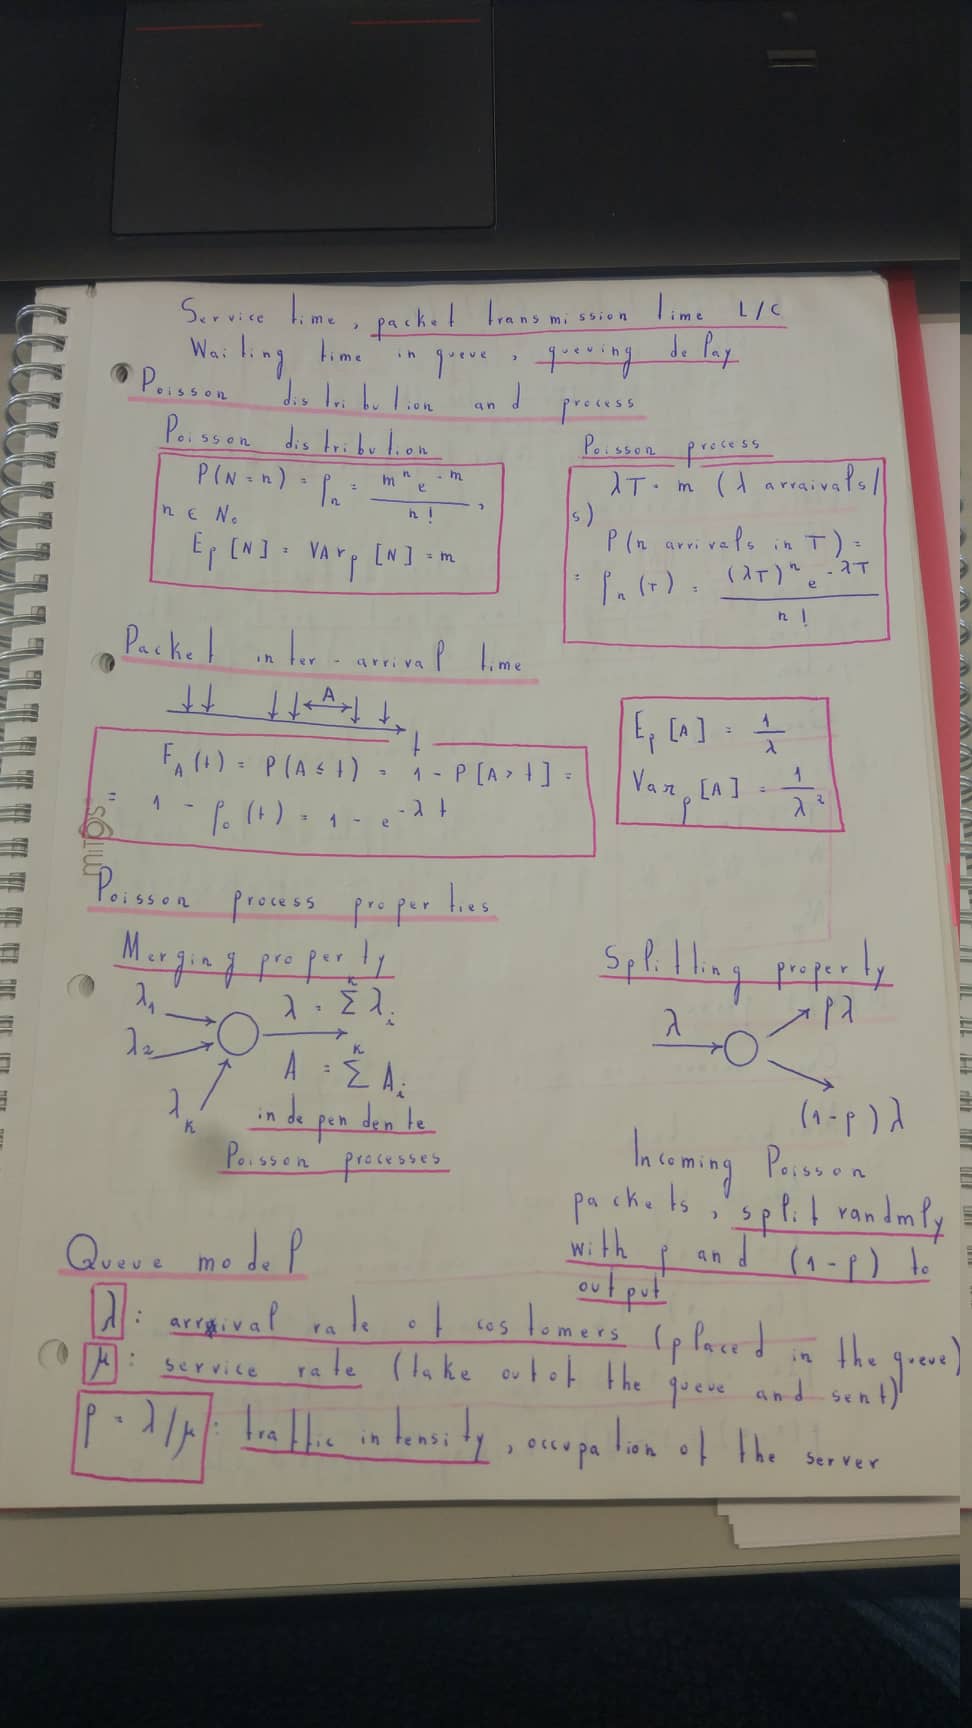 Service time, packet transmission time L/C
Waiting time in queue, queuing delay
Poisson distribution and process
Poisson distribution
P(N=n) = Pn = m^n e^-m / n! ,
n ∈ N0
Ep [N] = VArp [N] = m
Poisson process
λT = m (λ arraivals/
s)
P(n arrivals in T) =
= Pn(T) = (λT)^n e^-λT / n!
Packet inter-arrival time
A
t
FA(t) = P(A ≤ t) = 1 - P[A > t] =
= 1 - P0(t) = 1 - e^-λt
Ep[A] = 1/λ
Varp[A] = 1/λ²
MiTOS
Poisson process properties
Merging property
λ1
λ2
λK
λ = Σ^K λi
A = Σ^K Ai
independente
Poisson processes
Splitting property
λ
pλ
(1-p)λ
Incoming Poisson
packets, split randmly
with p and (1-p) to
output
Queue model
λ: arrival rate of costomers (placed in the queue)
μ: service rate (take out of the queue and sent)
ρ = λ/μ: traffic intensity, occupation of the server